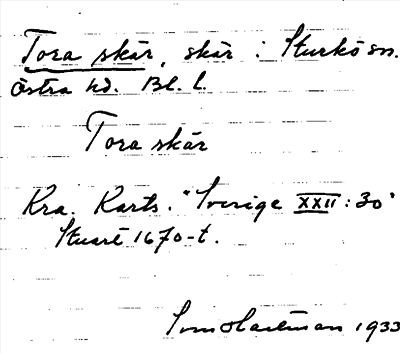 Tora skär, skär i Sturkö sn.
Östra hd. Bl. l.
Tora skär
Kra. Karts. "Sverige XXII: 30"
Stuart 1670-t.
1933